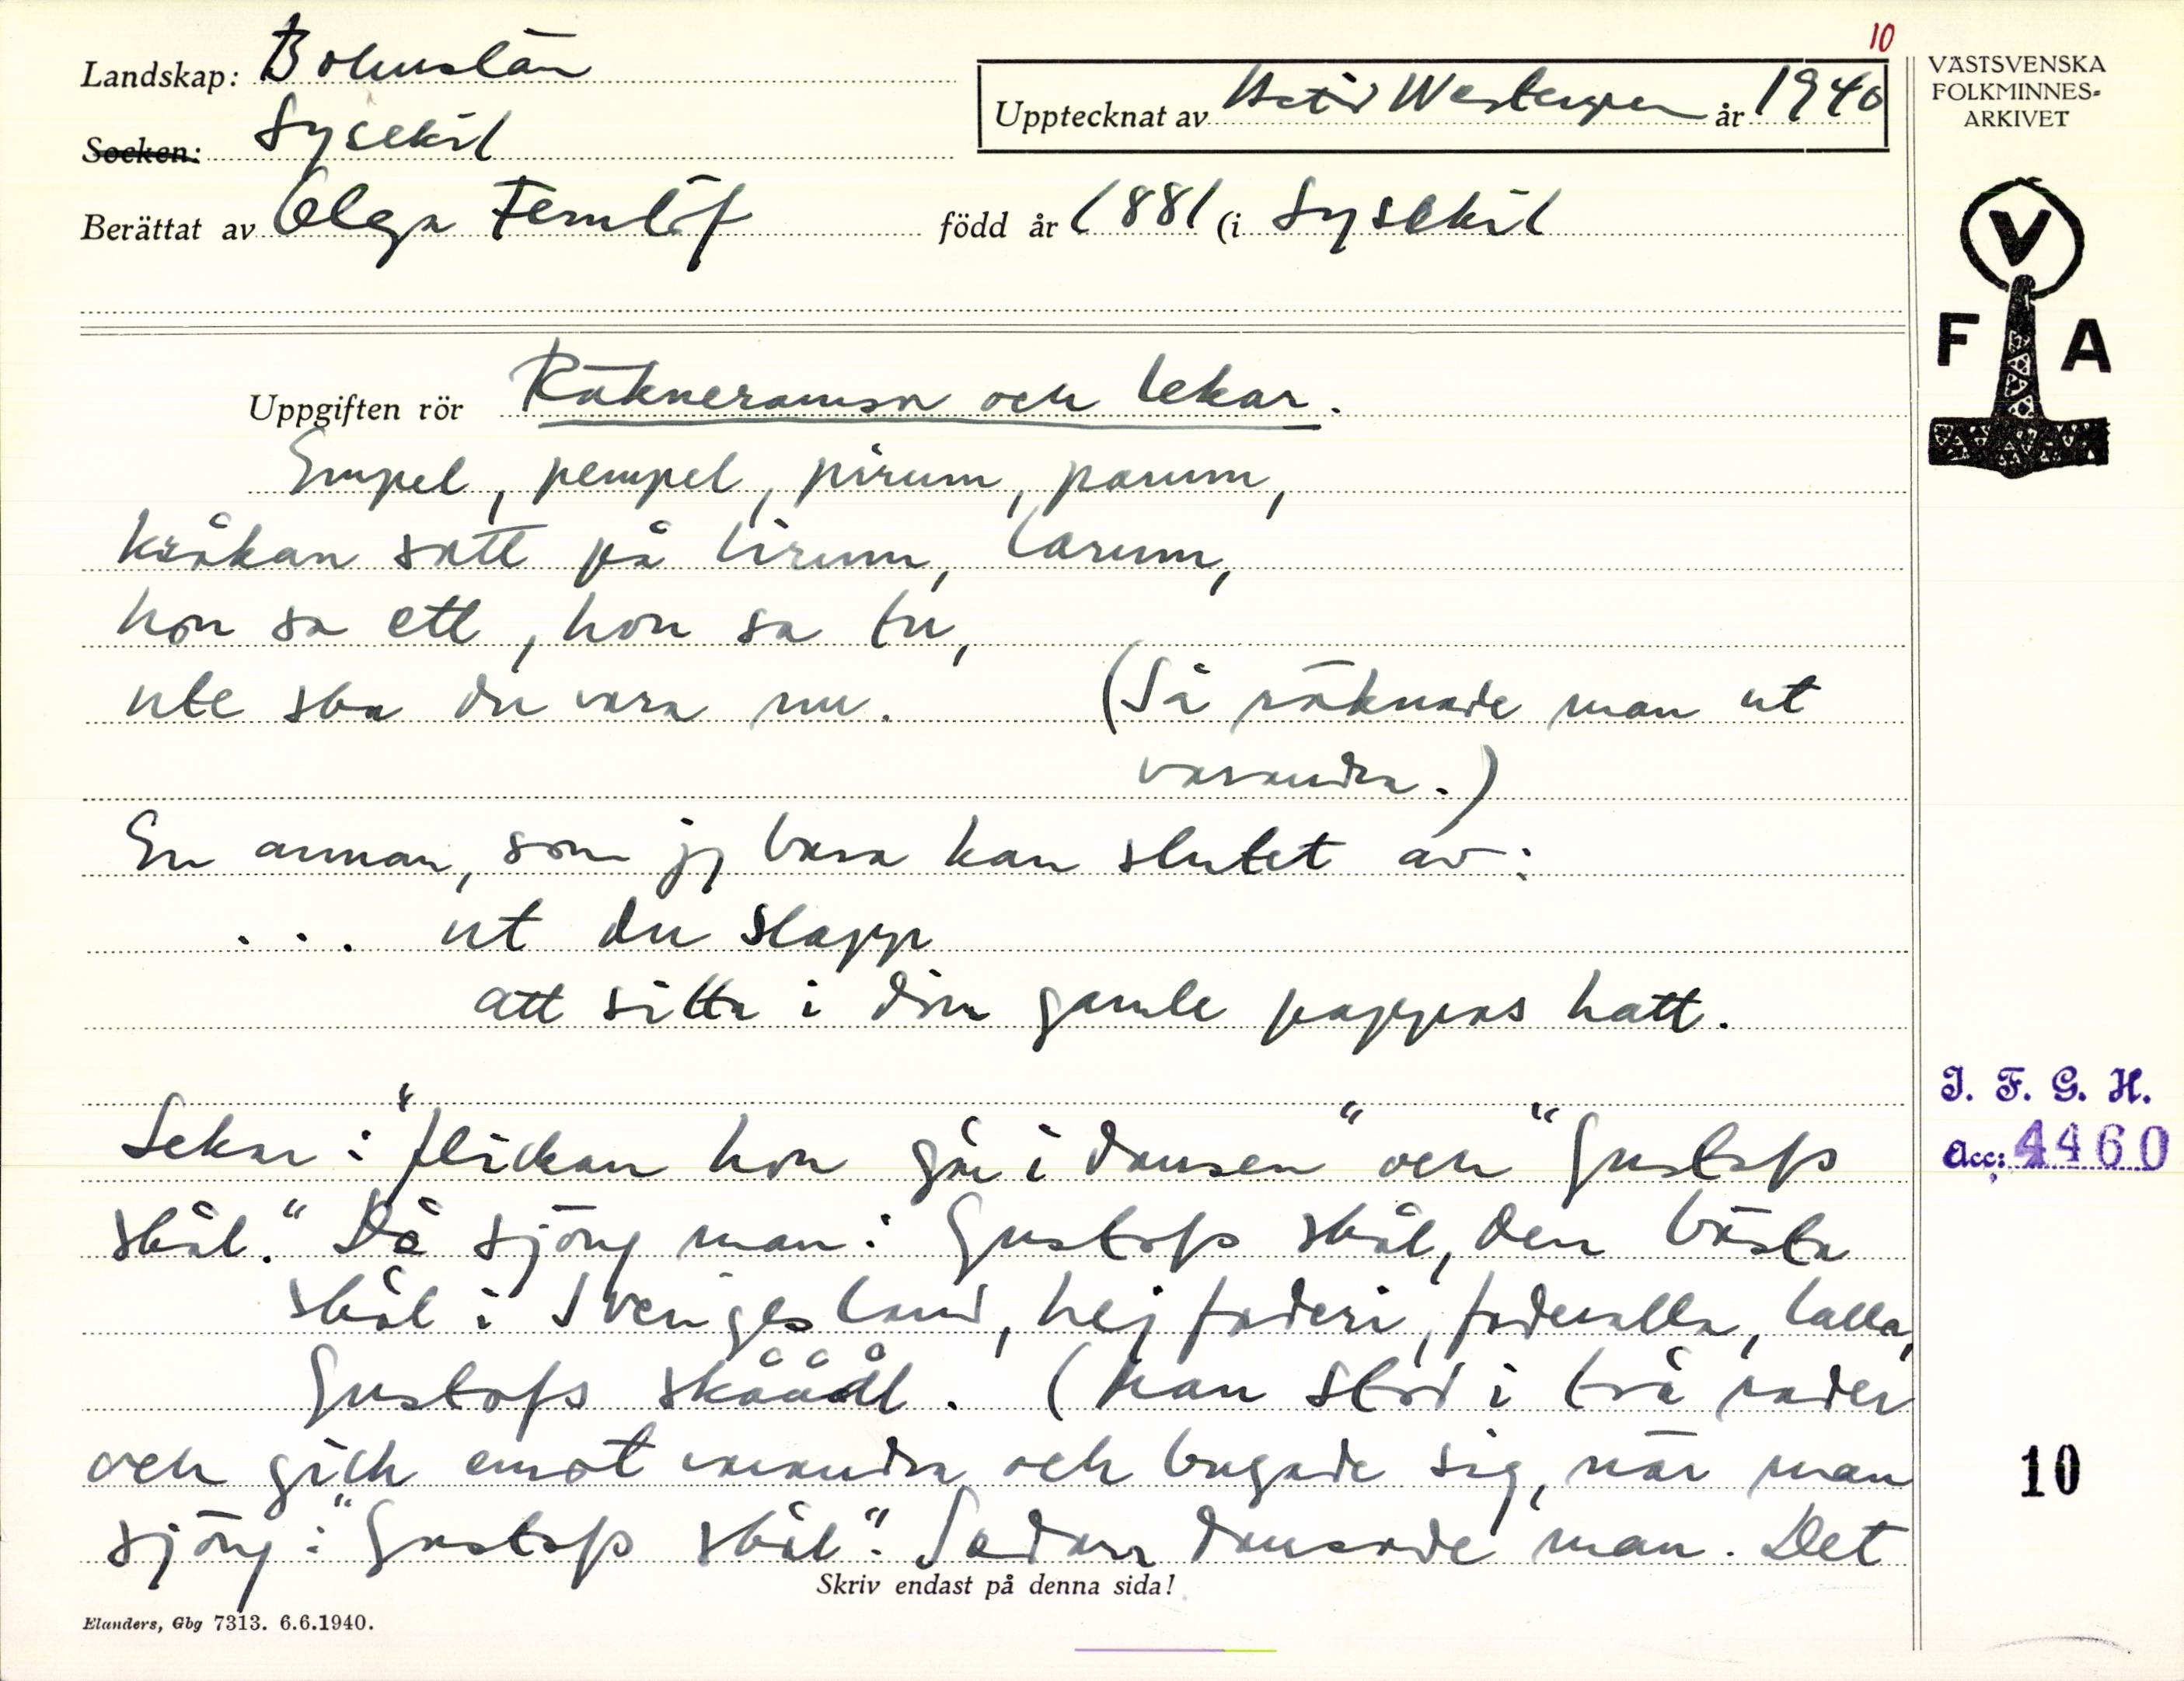 10
Landskap: Bohuslän
Socken: Lysekil
Upptecknat av Astrid Westergren år 1940
VÄSTSVENSKA
FOLKMINNES-
ARKIVET
Berättat av Olga Femlöf född år 1881 (i Lysekil
V
F A
Uppgiften rör Räkneramsa och lekar.
Empel, pempel, pirum, parum,
kråkan satt på lirum, larum,
hon sa ett, hon sa tu,
ute ska du vara nu. (Så räknade man ut
varandra.)
En annan, som jg bara kan slutet av:
... ut du slapp
att sitta i din gamle pappas hatt.
I. F. G. H.
Acc: 4460
Lekar: "flickan hon går i dansen" och "Gustafs
skål." Då sjöng man: Gustafs skål, den bästa
skål i Sveriges land, hej faderi, faderalla, lalla,
Gustafs skåååål. (Man stod i två rader
och gick emot varandra och bugade sig, när man
sjöng: "Gustafs skål". Sedan dansade man. Det
10
Skriv endast på denna sida!
Elanders, Gbg 7313. 6.6.1940.